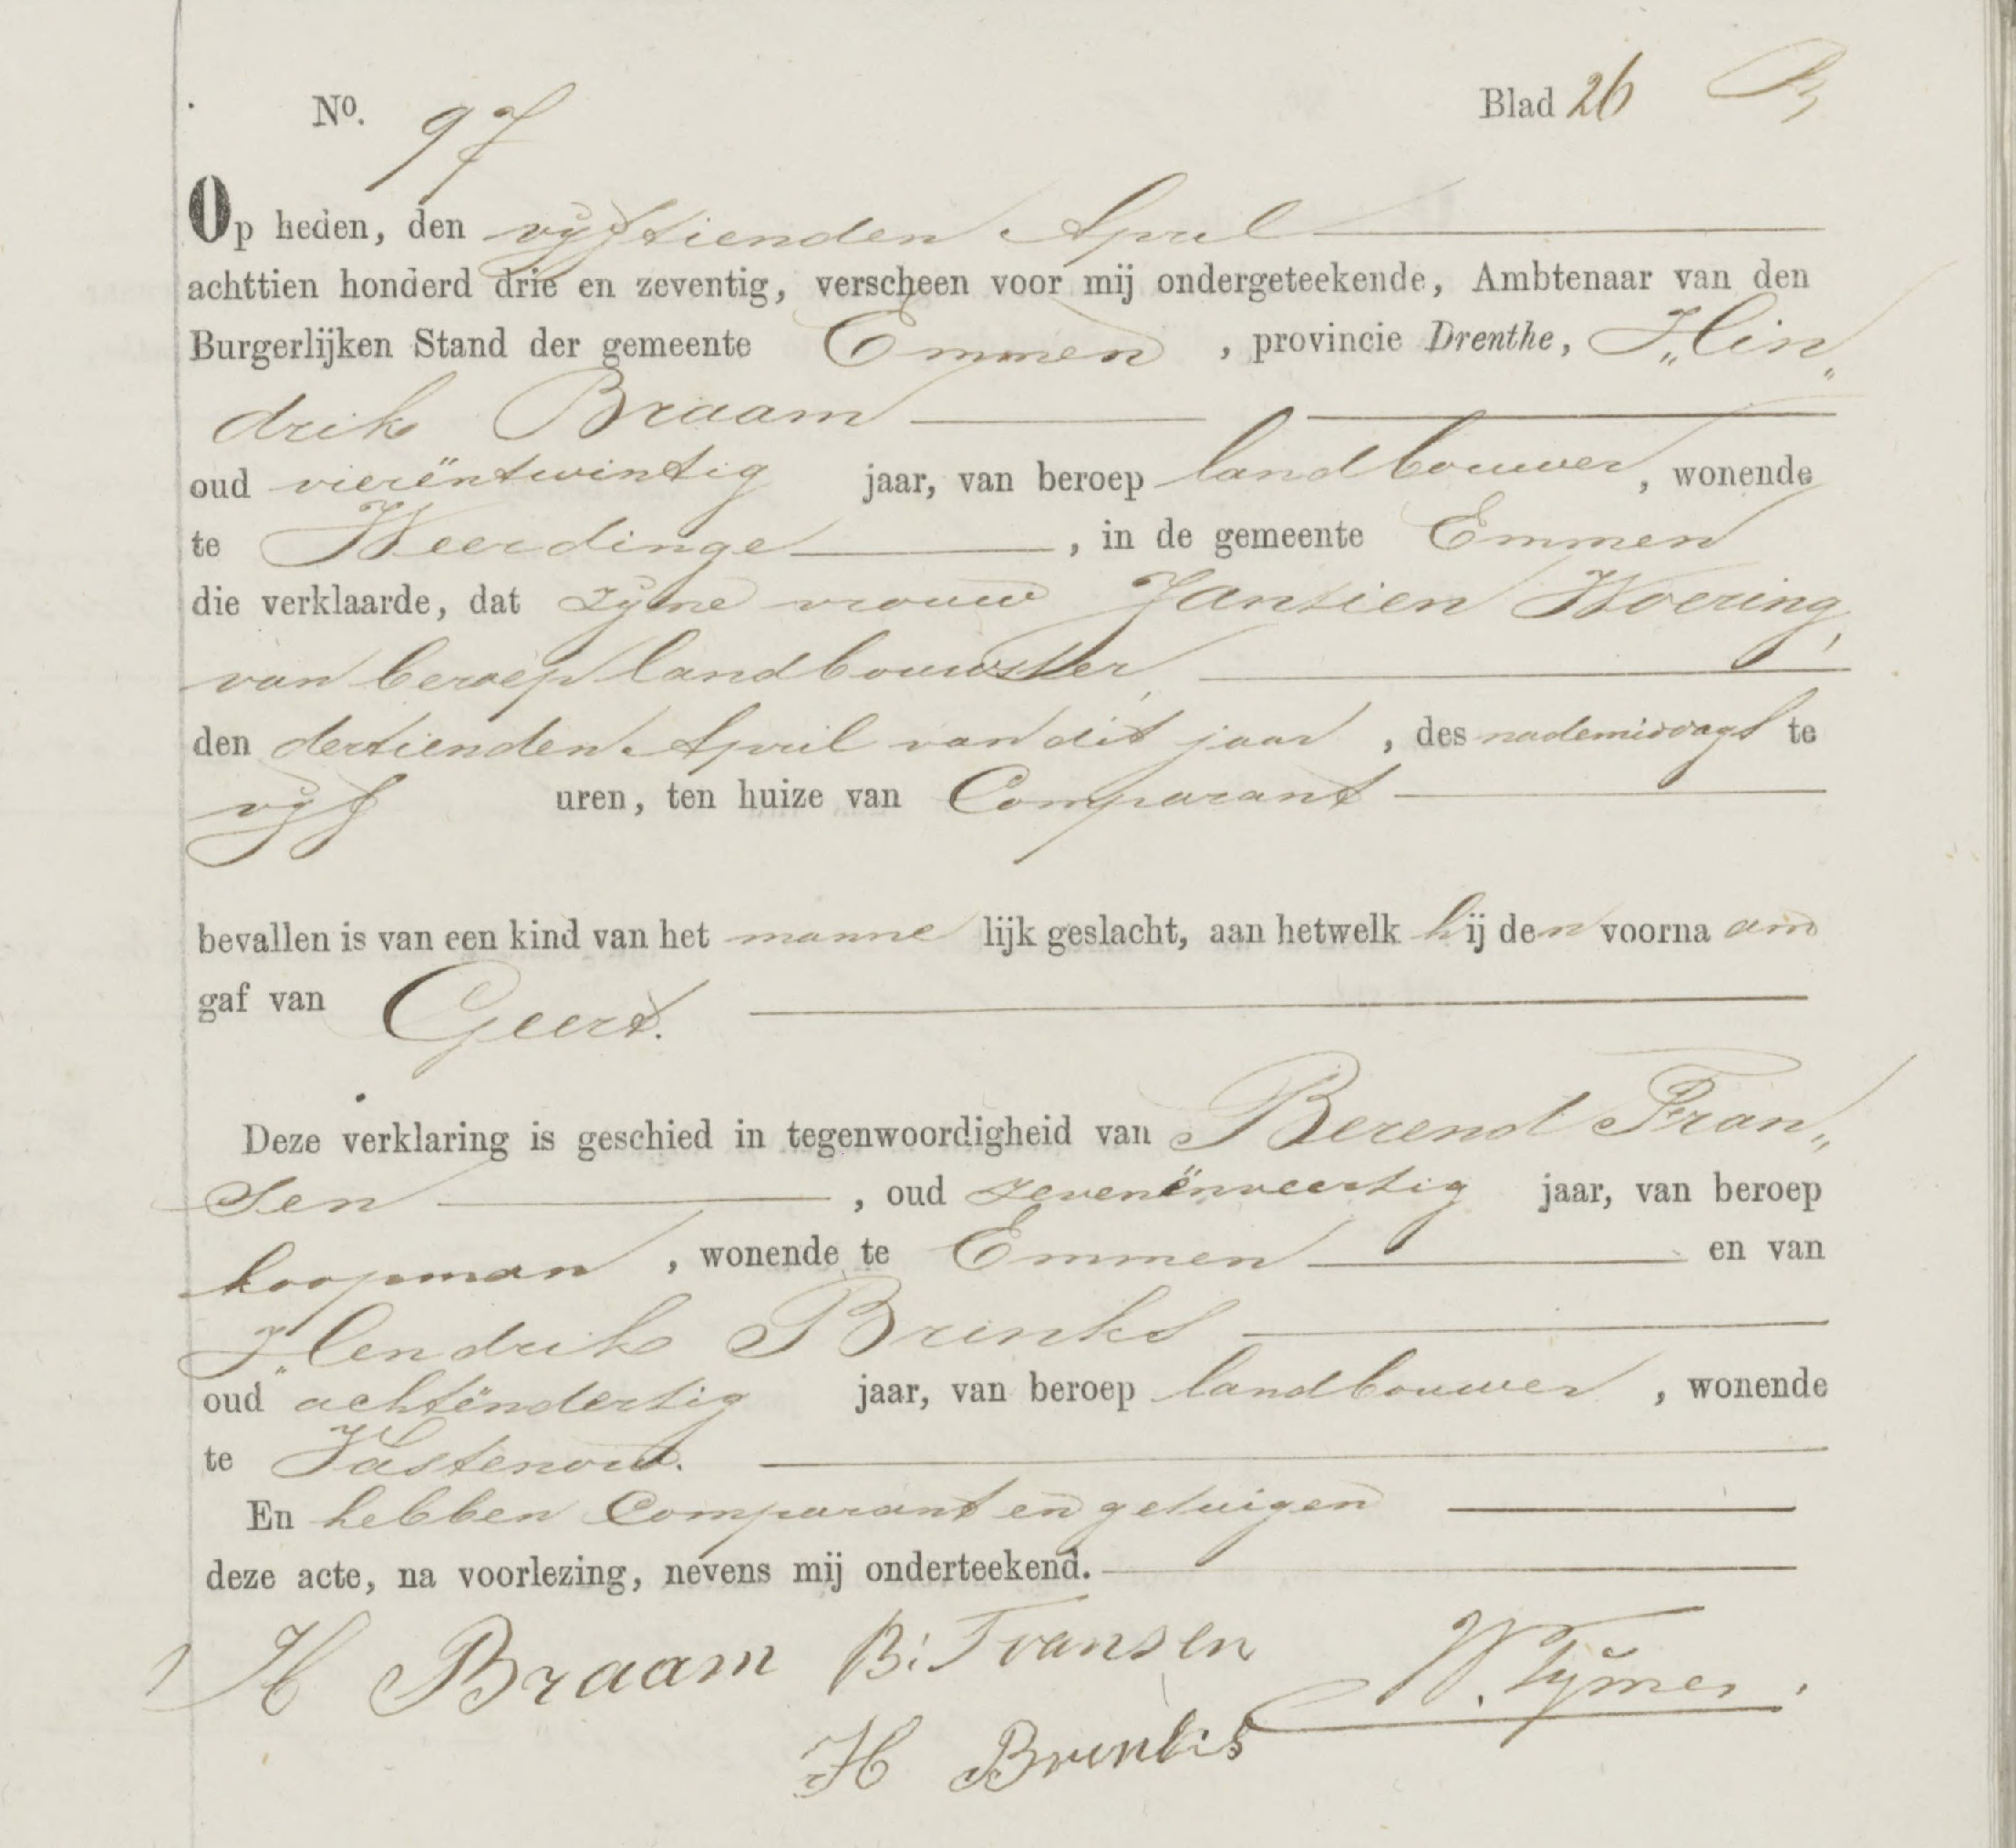 No. 97 Blad 26
Op heden, den vyftienden April
achttien honderd drie en zeventig, verscheen voor mij ondergeteekende, Ambtenaar van den
Burgerlijken Stand der gemeente Emmen, provincie Drenthe, Hin„
drik Braam
oud vierëntwintig jaar, van beroep landbouwer, wonende
te Weerdinge, in de gemeente Emmen
die verklaarde, dat zyne vrouw Jantien Woering,
van beroep landbouwster,
den dertienden April van dit jaar, des nademiddags te
vyf uren, ten huize van Comparant
bevallen is van een kind van het mannelijk geslacht, aan hetwelk hij den voornaam
gaf van Geert.
Deze verklaring is geschied in tegenwoordigheid van Berend Fran„
sen, oud zevenënveertig jaar, van beroep
koopman, wonende te Emmen en van
Hendrik Brinks
oud achtëndertig jaar, van beroep landbouwer, wonende
te Wastenoud.
En hebben Comparant en getuigen
deze acte, na voorlezing, nevens mij onderteekend.
H Braam B: Fransen W. Tymes.
H Brinks